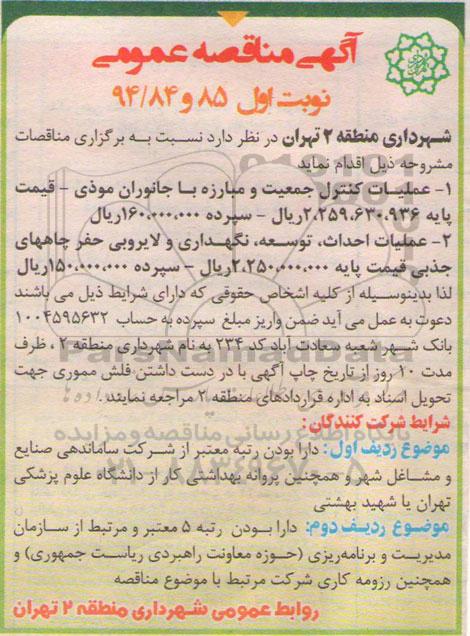 آگهی مناقصه عمومی
نوبت اول ۸۵ و ۹۴/۸۴
شهرداری منطقه ۲ تهران در نظر دارد نسبت به برگزاری مناقصات
مشروحه ذیل اقدام نماید
۱- عملیات کنترل جمعیت و مبارزه با جانوران موذی - قیمت
پایه ۲.۲۵۹.۶۳۰.۹۳۶ریال - سپرده ۱۶۰.۰۰۰.۰۰۰ریال
۲- عملیات احداث، توسعه، نگهداری و لایروبی حفر چاههای
جذبی قیمت پایه ۲.۲۵۰.۰۰۰.۰۰۰ریال - سپرده ۱۵۰.۰۰۰.۰۰۰ریال
لذا بدینوسیله از کلیه اشخاص حقوقی که دارای شرایط ذیل می باشند
دعوت به عمل می آید ضمن واریز مبلغ سپرده به حساب ۱۰۰۴۵۹۵۶۳۲
بانک شهر شعبه سعادت آباد کد ۲۳۴ به نام شهرداری منطقه ۲ ، ظرف
مدت ۱۰ روز از تاریخ چاپ آگهی با در دست داشتن فلش مموری جهت
تحویل اسناد به اداره قراردادهای منطقه ۲ مراجعه نمایند.
شرایط شرکت کنندگان :
موضوع ردیف اول: دارا بودن رتبه معتبر از شرکت ساماندهی صنایع
و مشاغل شهر و همچنین پروانه بهداشتی کار از دانشگاه علوم پزشکی
تهران یا شهید بهشتی
موضوع ردیف دوم: دارا بودن رتبه ۵ معتبر و مرتبط از سازمان
مدیریت و برنامه‌ریزی (حوزه معاونت راهبردی ریاست جمهوری) و
همچنین رزومه کاری شرکت مرتبط با موضوع مناقصه
روابط عمومی شهرداری منطقه ۲ تهران
ParsNamadData
پایگاه اطلاع رسانی مناقصه و مزایده